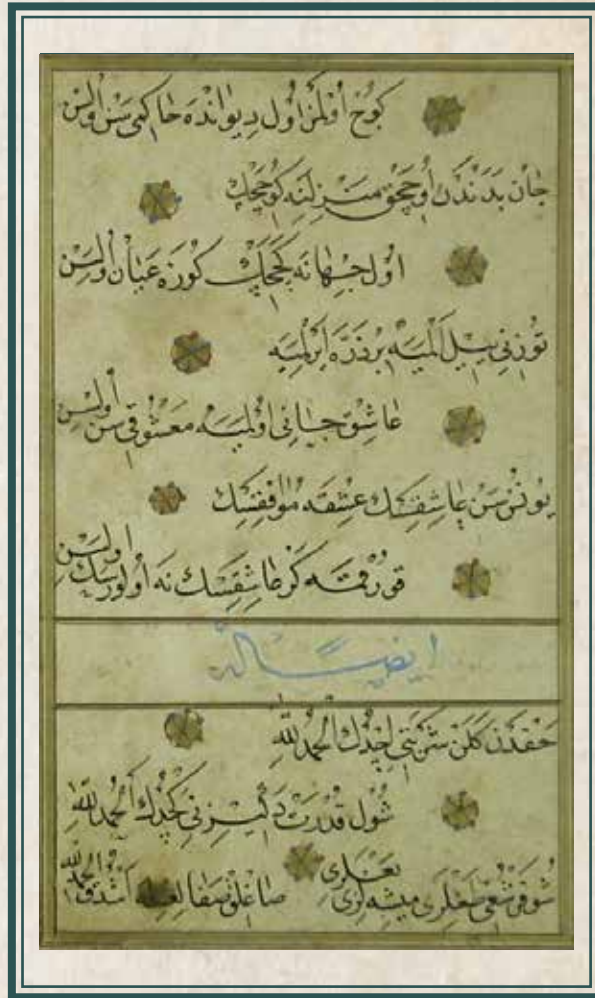 كوج أولمز أول ديوانده حاكمى سن أولسن
جان بدندن أوچجق منزلنه كوچجك
اول جهانه كچجك كوزه عيان أولسن
توزنى ييل المیه بر ذره ایرلمیه
عاشق جانى اولميه معشوقى سن أولسن
يونس سن عاشقسك عشقه موافقسك
قورقمه كر عاشقسك نه أولورسك اولسن
ايضا له
حقدن كلن شربتى ايچدك الحمد لله
شول قدرت دكيزنى كچدك الحمد لله
شو قرشوقى طغلرى ميشه لرى بغلرى
صاغلق صفالغيله اشدق الحمد لله